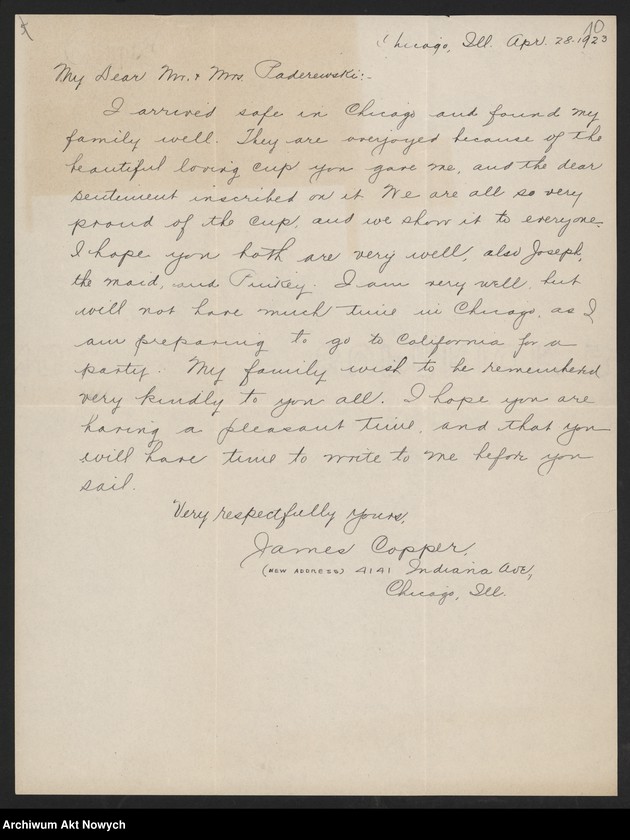 10
Chicago, Ill. Apr. 28-1923
My Dear Mr. & Mrs. Paderewski:-
I arrived safe in Chicago and found my
family well. They are overjoyed because of the
beautiful loving cup you gave me, and the dear
sentement inscribed on it. We are all so very
proud of the cup, and we show it to everyone.
I hope you both are very well, also Joseph,
the maid, and Pinkey. I am very well, but
will not have much time in Chicago, as I
am preparing to go to California for a
party. My family wish to be remembered
very kindly to you all. I hope you are
having a pleasant time, and that you
will have time to write to me before you
sail.
Very respectfully yours,
James Copper,
(NEW ADDRESS) 4141 Indiana Ave,
Chicago, Ill.
Archiwum Akt Nowych